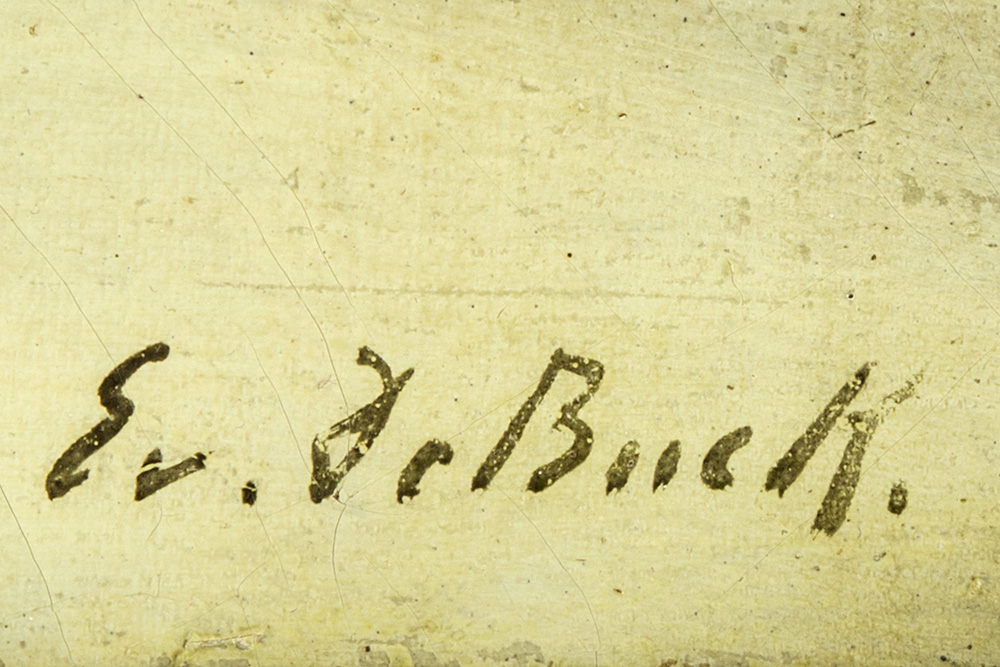 Ev. De Buck.